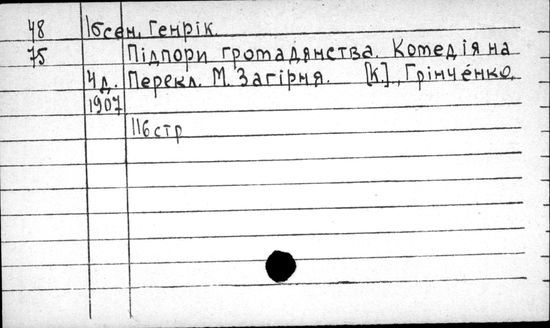 48 Ібсен, Генрік.
75 Підпори громадянства. Комедія на
4 д. Перекл. М. Загірня. [К], Грінченко,
1907
116 стр